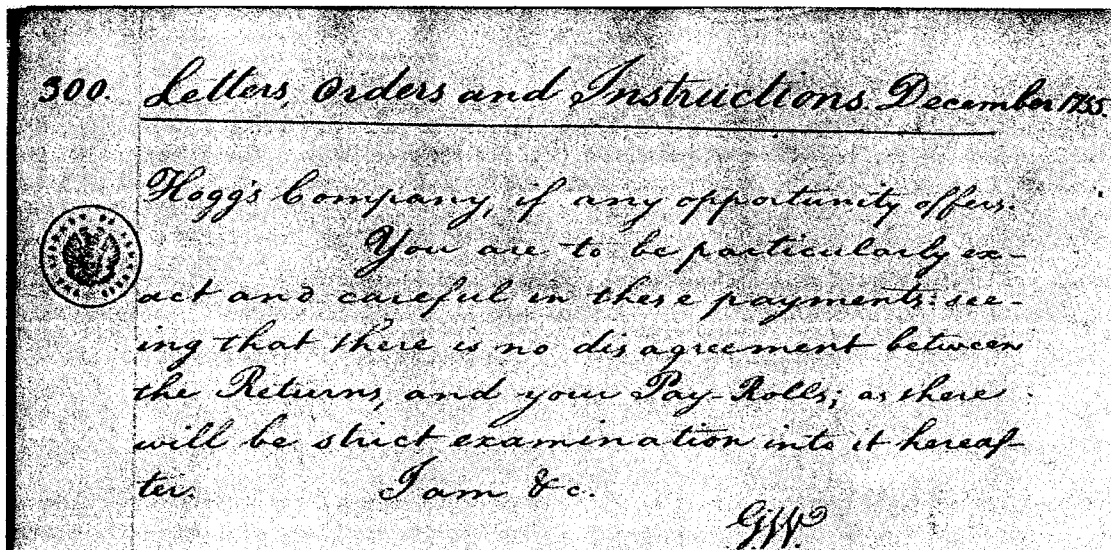 300. Letters, Orders and Instructions. December 1755.
Hogg's Company, if any opportunity offers.
You are to be particularly ex-
act and careful in these payments: see-
ing that there is no disagreement between
the Returns, and your Pay-Rolls; as there
will be strict examination into it hereaf-
ter. I am &c.
G.W.